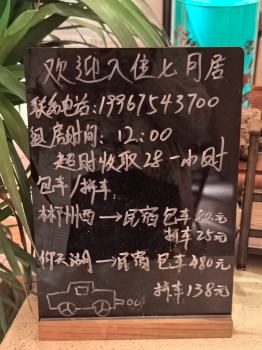 欢迎入住七月居
联系电话:19967543700
退房时间:12:00
超时收取28一小时
包车/拼车:
郴州西→民宿 包车 元
拼车25元
仰天湖→民宿 包车480元
拼车138元